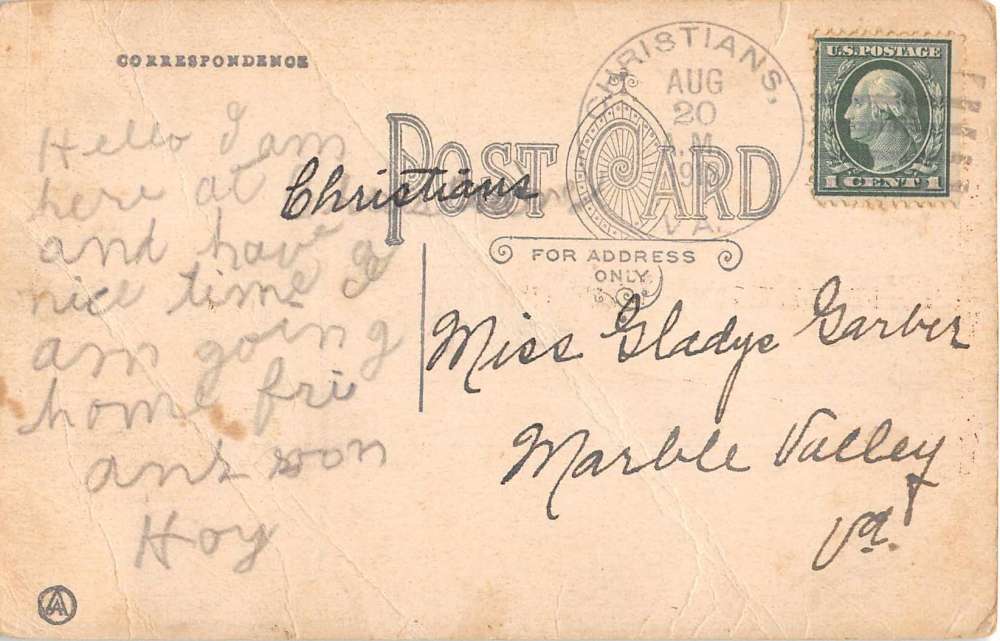 CORRESPONDENCE
Hello I am
here at Christians
and have a
nice time I
am going
home fri
ans son
Hoy
POST CARD
FOR ADDRESS
ONLY
CHRISTIANS,
AUG
20
VA.
U.S. POSTAGE
1 CENT 1
Miss Gladys Garber
Marble Valley
Va.